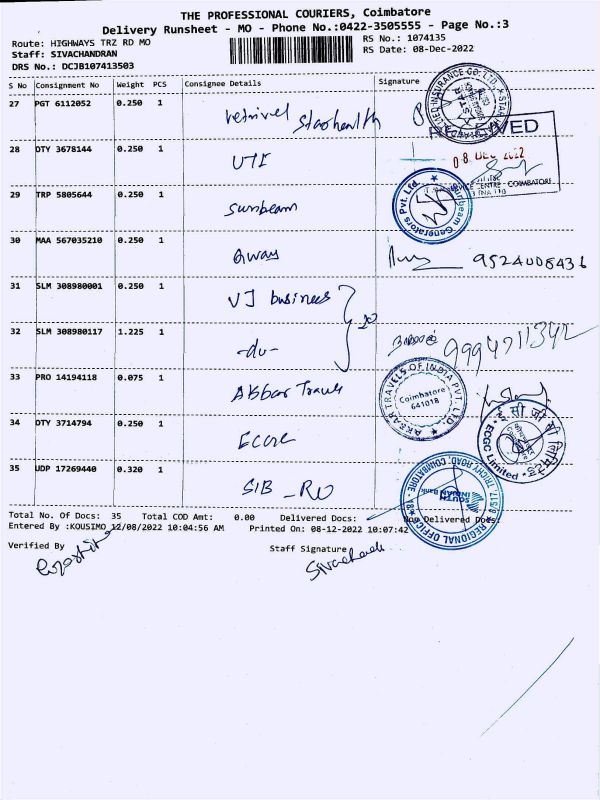 THE PROFESSIONAL COURIERS, Coimbatore
Delivery Runsheet - MO - Phone No.:0422-3505555 - Page No.:3
Route: HIGHWAYS TRZ RD MO
RS No.: 1074135
Staff: SIVACHANDRAN
RS Date: 08-Dec-2022
DRS No.: DCJB107413503
S No Consignment No Weight PCS Consignee Details Signature
27 PGT 6112052 0.250 1 Starhealth
RECEIVED
28 DTY 3678144 0.250 1 UTI
08 DEC 2022
SERVICE CENTRE - COIMBATORE
29 TRP 5805644 0.250 1 Sunbeam
Sunbeam Generators Pvt. Ltd.
30 MAA 567035210 0.250 1 Away 9524008436
31 SLM 308980001 0.250 1 VJ business
32 SLM 308980117 1.225 1 -do-
33 PRO 14194118 0.075 1 Akbar Travels
AKBAR TRAVELS OF INDIA PVT. LTD.
Coimbatore
641018
34 DTY 3714794 0.250 1 ECGC
ECGC Limited
35 UDP 17269440 0.320 1 SIB - RO
SOUTH INDIAN Bank
REGIONAL OFFICE
TRICHY ROAD, COIMBATORE - 18
Total No. Of Docs: 35 Total COD Amt: 0.00 Delivered Docs: Non Delivered Docs:
Entered By :KOUSIMO 12/08/2022 10:04:56 AM Printed On: 08-12-2022 10:07:42
Verified By
Staff Signature
Sivachandi